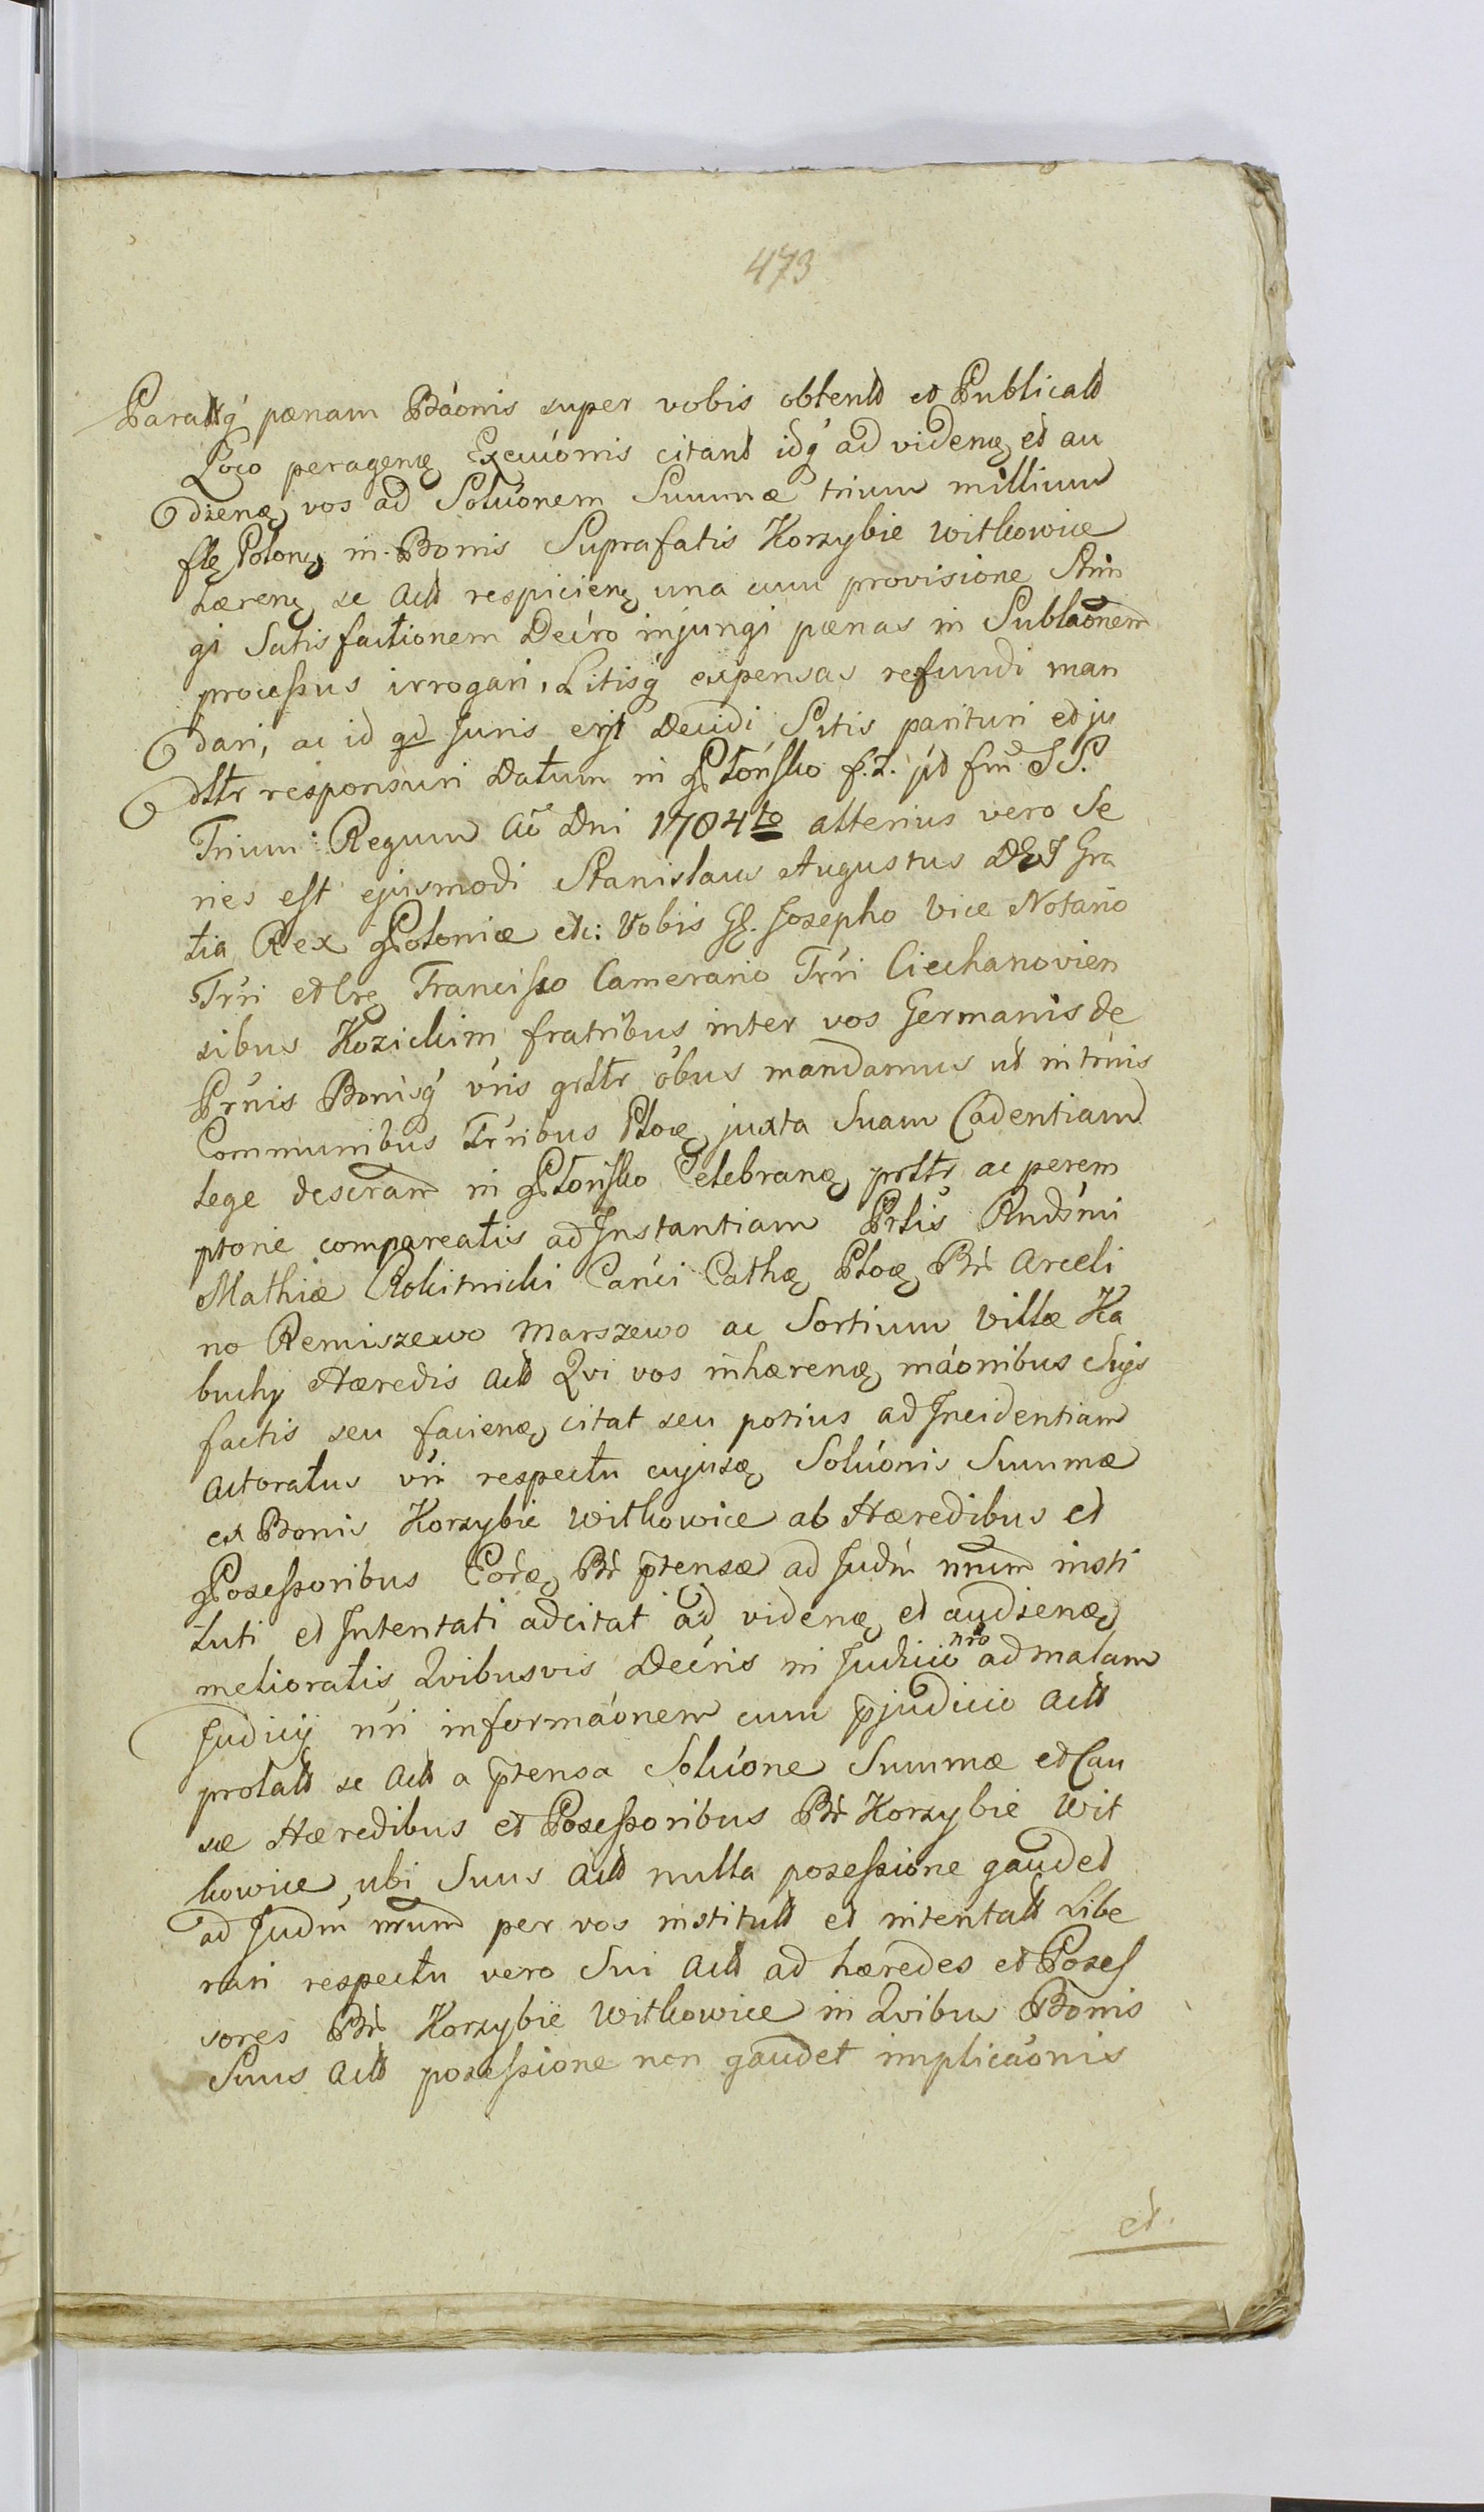 473
Paratt́q́ pœnam Báonis super vobis obtentt et Publicatt
Loco peragenę Execuónis citant idq́ ad videnę et au
dienę vos ad Solúonem Summæ trium millium
flę Polonę in Bonis Suprafatis Korzybie Witkowice
hærenę se Actt respicienę una cum provisione Strin
gi Satisfactionem Decŕo injungi pœnas in Sublaónem
processus irrogari, Litisq́ expensas refundi man
dari, ac id qd Juris erit Decidi Sitis parituri et ju
dttr responsuri Datum in Płońsko f. 2. pt fm̄ SS.
Trium Regum Aō Dni 1784to alterius vero Se
ries est ejusmodi Stanislaus Augustus DEI Gra
tia Rex Poloniæ etc: Vobis GG. Josepho Vice Notario
Tŕri et Grę Francisco Camerario Tŕri Ciechanovien
sibus Kozickim fratribus inter vos Germanis de
Pŕnis Bonisq́ v́ris grlttr óbus mandamus ut in t́rnis
Communibus Tŕribus Płocę juxta Suam Cadentiam
lege descram in Płońsko Celebranę prlttr ac perem
ptorie compareatis ad Instantiam Prtis Rndśmi
Mathiæ Rokitnicki Cańci Cathę Płocę Bŕ Arceli
no Remiszewo Marszewo ac Sortium Villæ Ka
buchy Hæredis Actt Qvi vos inhærenę máonibus Suis
factis seu facienę citat seu potius ad Incidentiam
Actoratus v́ri respectu cujusę Solúonis Summæ
ex Bonis Korzybie Witkowice ab Hæredibus et
Possessoribus Eórę Bŕ p̄tensæ ad Judḿ nrum insti
tuti et Intentati adcitat ad videnę et audienę
melioratis Qvibusvis Decŕis in Judicio nro ad malam
Judicij nŕi informáonem cum p̄judicio Actt
prolatt se Actt a p̄tensa Solúone Summæ et Cau
sæ Hæredibus et Possessoribus Bŕ Korzybie Wit
kowice ubi Suus Actt nulla possessione gaudet
ad Judḿ nrum per vos institutt et intentatt Libe
rari respectu vero Sui Actt ad hæredes et Posses
sores Bŕ Korzybie Witkowice in Qvibus Bonis
Suus Actt possessione non gaudet implicaónis
et.